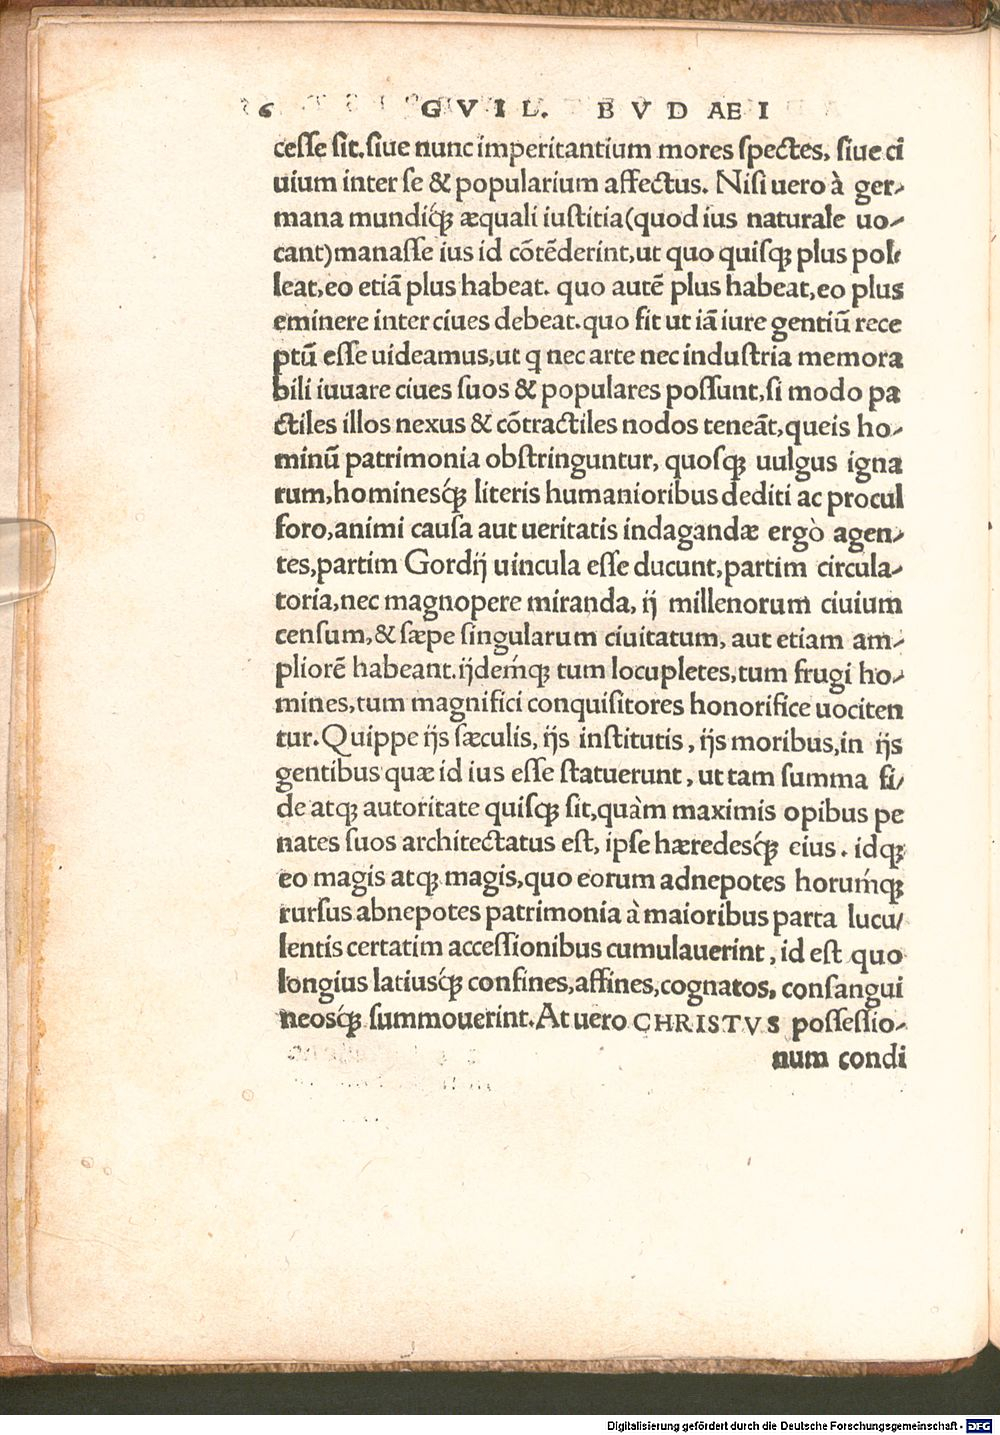 6 GVIL. BVDAEI
ceſſe ſit. ſiue nunc imperitantium mores ſpectes, ſiue ci
uium inter ſe & popularium affectus. Niſi uero à ger-
mana mundiq́ꝫ æquali iuſtitia (quod ius naturale uo-
cant) manaſſe ius id cōtēderint, ut quo quiſqꝫ plus pol-
leat, eo etiā plus habeat. quo autē plus habeat, eo plus
eminere inter ciues debeat. quo fit ut iā iure gentiū rece
ptū eſſe uideamus, ut q nec arte nec induſtria memora
bili iuuare ciues ſuos & populares poſſunt, ſi modo pa
ctiles illos nexus & cōtractiles nodos teneāt, queis ho-
minū patrimonia obſtringuntur, quoſqꝫ uulgus igna
rum, hominesq́ꝫ literis humanioribus dediti ac procul
foro, animi cauſa aut ueritatis indagandæ ergò agen-
tes, partim Gordij uincula eſſe ducunt, partim circula-
toria, nec magnopere miranda, ij millenorum ciuium
cenſum, & ſæpe ſingularum ciuitatum, aut etiam am-
pliorē habeant. ijdemq́ꝫ tum locupletes, tum frugi ho-
mines, tum magnifici conquiſitores honorifice uociten
tur. Quippe ijs ſæculis, ijs inſtitutis, ijs moribus, in ijs
gentibus quæ id ius eſſe ſtatuerunt, ut tam ſumma fi-
de atqꝫ autoritate quiſqꝫ ſit, quàm maximis opibus pe
nates ſuos architectatus eſt, ipſe hæredesq́ꝫ eius. idqꝫ
eo magis atqꝫ magis, quo eorum adnepotes horumq́ꝫ
rurſus abnepotes patrimonia à maioribus parta lucu-
lentis certatim acceſſionibus cumulauerint, id eſt quo
longius latiusq́ꝫ confines, affines, cognatos, conſangui
neosq́ꝫ ſummouerint. At uero CHRISTVS poſſeſſio-
num condi
Digitalisierung gefördert durch die Deutsche Forschungsgemeinschaft - DFG